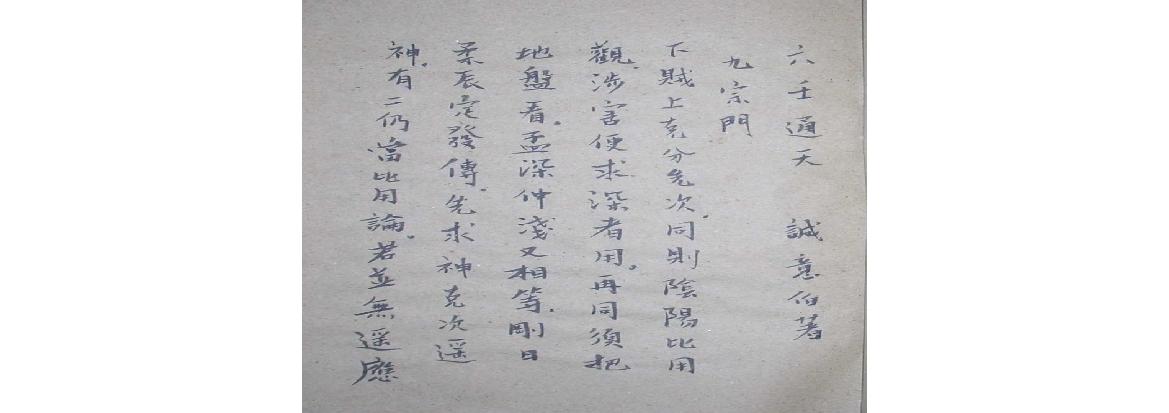 六壬通天　誠意伯著
九宗門
下賊上克分先次。同則陰陽比用
觀。涉害便求深者用。再同須把
地盤看。孟深仲淺又相等。剛日
柔辰定發傳。先求神克次遥
神。有二仍當比用論。若並無遥應